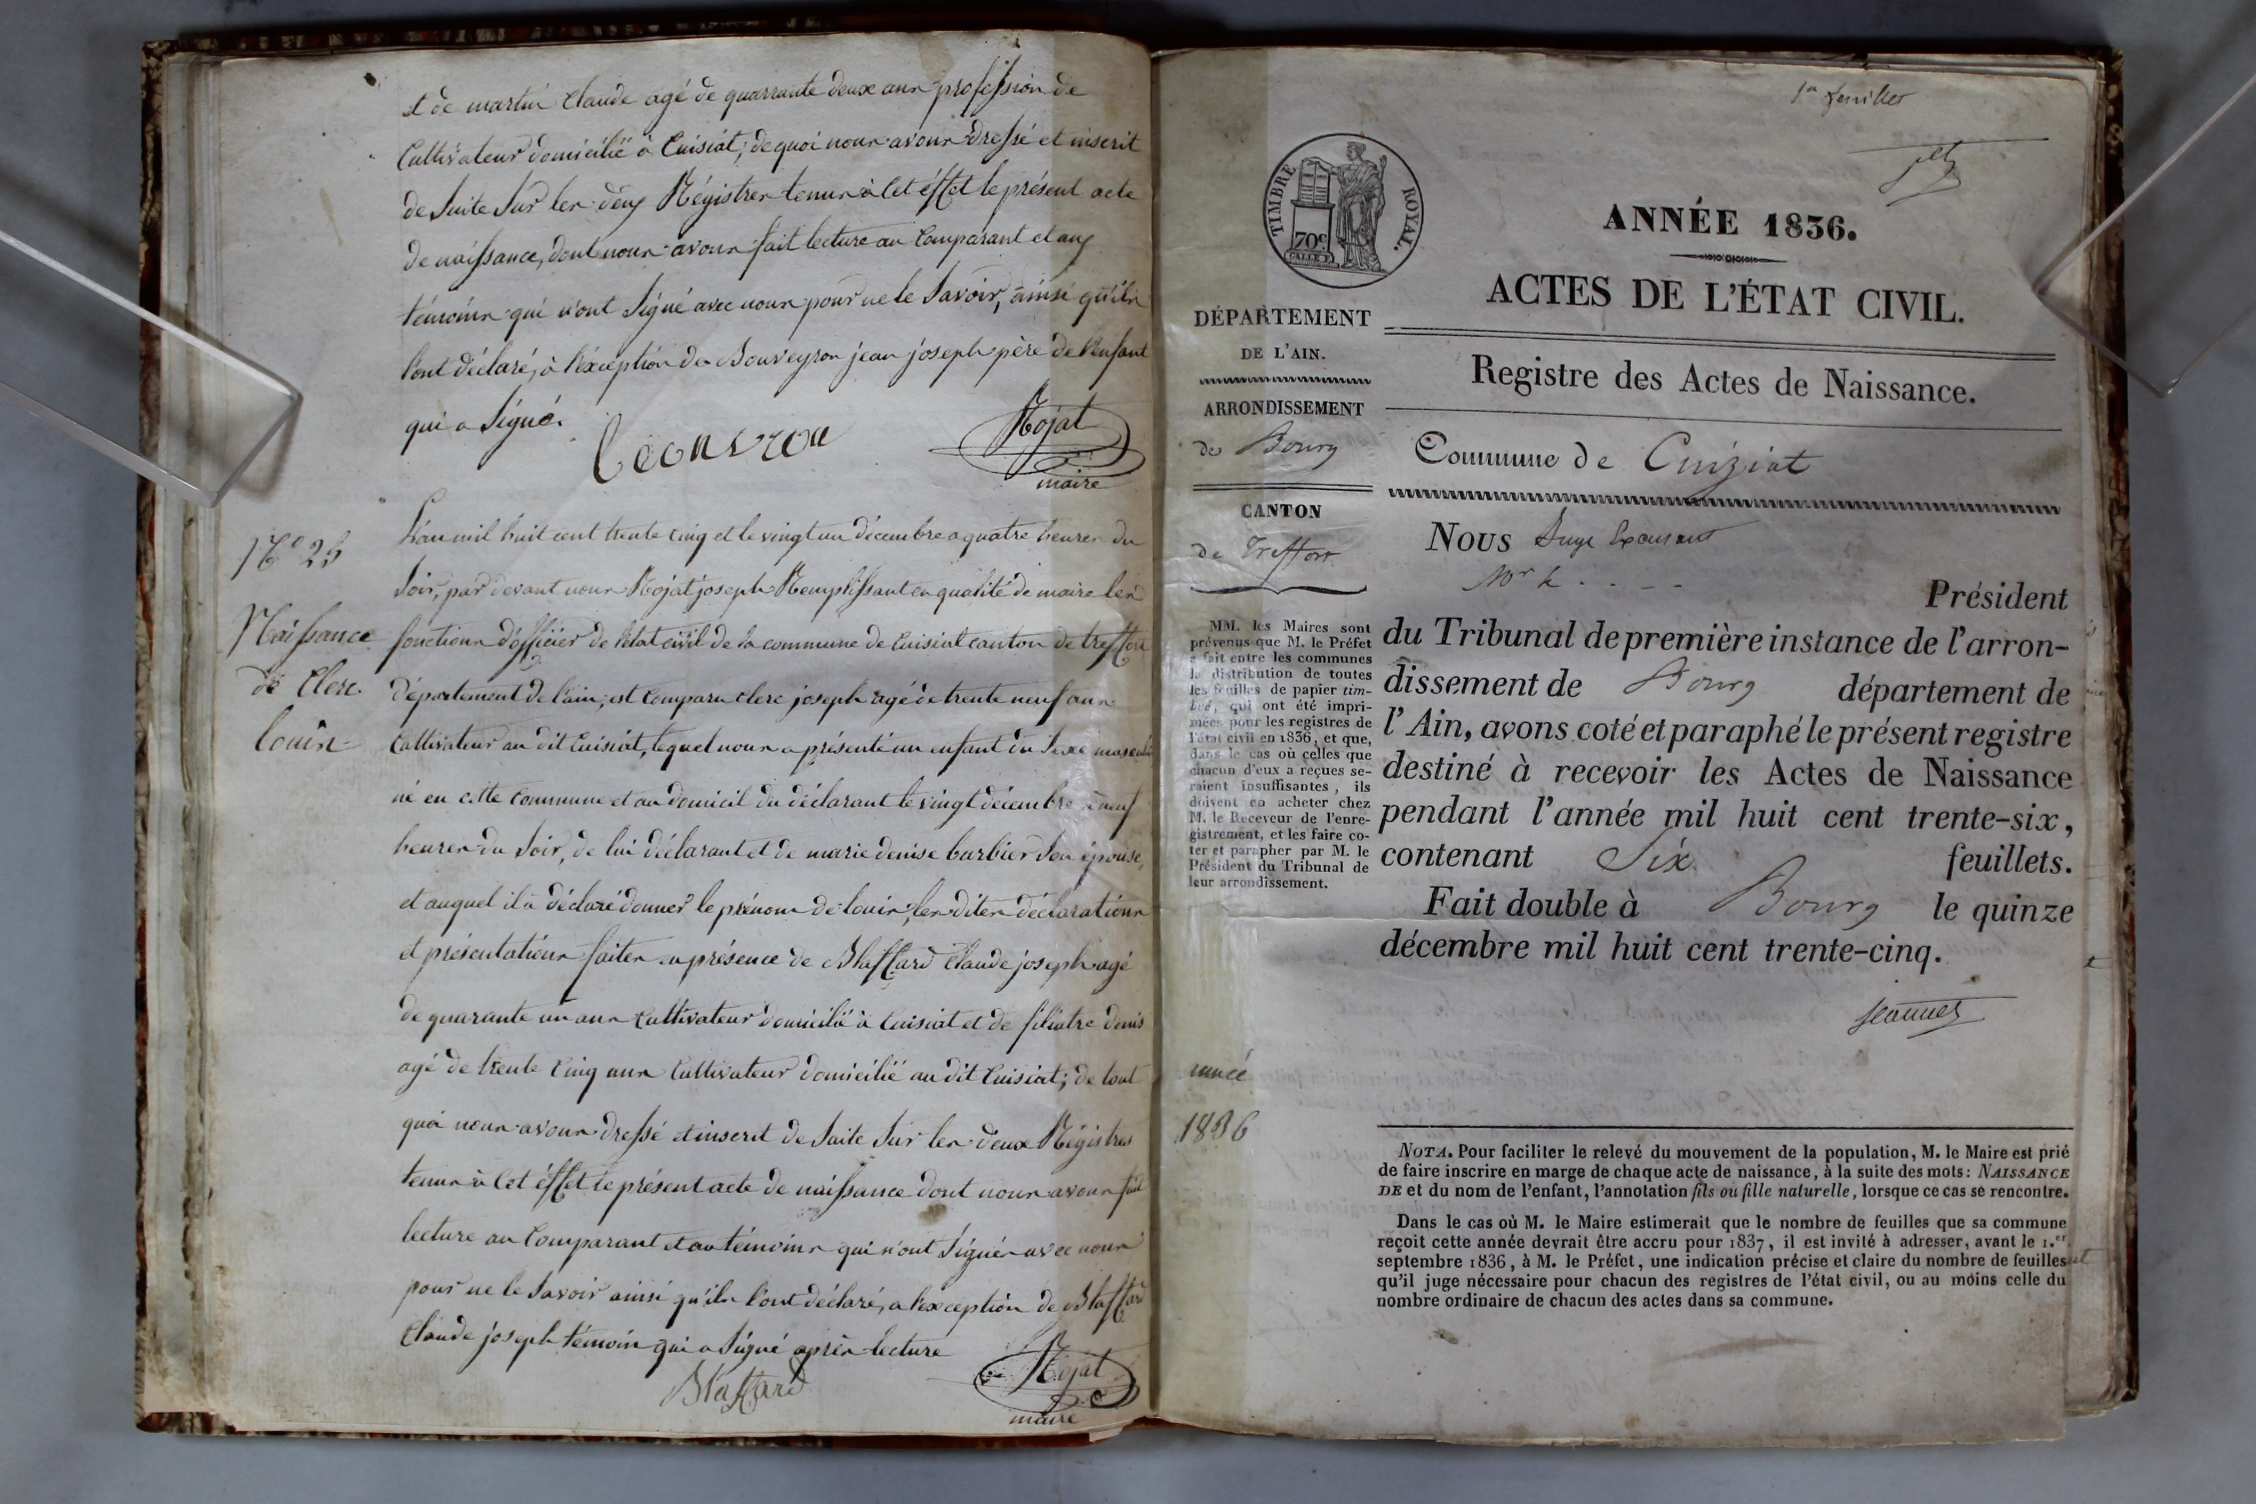 et de martin Claude agé de quarrante deux ans profession de
Cultivateur domicilié à Cuisiat; de quoi nous avons dressé et inscrit
de Suite Sur les deux Régistres tenus à Cet éffet le présent acte
de naissance, dont nous avons fait lecture au Comparant et aux
témoins qui n'ont Signé avec nous pour ne le Savoir, ainsi qu'ils
l'ont déclaré, à l'éxception de Bouveyron jean joseph père de l'enfant
qui a Signé.
Rojat
maire
N° 25
Naissance
de Clerc
louis
L'an mil huit cent trente cinq et le vingt un décembre a quatre heures du
Soir, par devant nous Rojat joseph Remplissant en qualité de maire les
fonctions d'officier de l'état civil de la commune de Cuisiat canton de treffort
département de l'ain, est Comparu Clerc joseph agé de trente neuf ans
Cultivateur au dit Cuisiat, lequel nous a présenté un enfant du Sexe masculin
né en cette Commune et au domicil du déclarant le vingt décembre à neuf
heures du Soir, de lui déclarant et de marie denise barbier Son épouse,
et auquel il a déclaré donner le prénom de louis, les dites déclarations
et présentations faites en présence de Blaffard Claude joseph agé
de quarante un ans Cultivateur domicilié à Cuisiat et de filiatre denis
agé de trente Cinq ans Cultivateur domicilié au dit Cuisiat; de tout
quoi nous avons dressé et inscrit de Suite Sur les deux Régistres
tenus à Cet éffet le présent acte de naissance dont nous avons fait
lecture au Comparant et au témoins qui n'ont Signés avec nous
pour ne le Savoir ainsi qu'ils l'ont déclaré, a l'exception de Blaffard
Claude joseph témoin qui a Signé après lecture
Blaffard
Rojat
maire
1er feuillet
TIMBRE ROYAL.
70c
ANNÉE 1836.
ACTES DE L'ÉTAT CIVIL.
DÉPARTEMENT
DE L'AIN.
ARRONDISSEMENT
de Bourg
CANTON
de Treffort
MM. les Maires sont
prévenus que M. le Préfet
a fait entre les communes
la distribution de toutes
les feuilles de papier tim-
bré, qui ont été impri-
mées pour les registres de
l'état civil en 1836, et que,
dans le cas où celles que
chacun d'eux a reçues se-
raient insuffisantes, ils
doivent en acheter chez
M. le Receveur de l'enre-
gistrement, et les faire co-
ter et parapher par M. le
Président du Tribunal de
leur arrondissement.
année
1836
Registre des Actes de Naissance.
Commune de Cuiziat
Nous Juge
Président
du Tribunal de première instance de l'arron-
dissement de Bourg département de
l'Ain, avons coté et paraphé le présent registre
destiné à recevoir les Actes de Naissance
pendant l'année mil huit cent trente-six,
contenant Six feuillets.
Fait double à Bourg le quinze
décembre mil huit cent trente-cinq.
NOTA. Pour faciliter le relevé du mouvement de la population, M. le Maire est prié
de faire inscrire en marge de chaque acte de naissance, à la suite des mots: NAISSANCE
DE et du nom de l'enfant, l'annotation fils ou fille naturelle, lorsque ce cas se rencontre.
Dans le cas où M. le Maire estimerait que le nombre de feuilles que sa commune
reçoit cette année devrait être accru pour 1837, il est invité à adresser, avant le 1.er
septembre 1836, à M. le Préfet, une indication précise et claire du nombre de feuilles
qu'il juge nécessaire pour chacun des registres de l'état civil, ou au moins celle du
nombre ordinaire de chacun des actes dans sa commune.